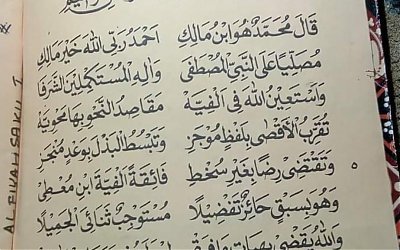 قَالَ مُحَمَّدٌ هُوَ ابْنُ مَالِكِ اَحْمَدُ رَبِّي اللهَ خَيْرَ مَالِكِ
مُصَلِّيًا عَلَى النَّبِيِّ الْمُصْطَفَى وَاٰلِهِ الْمُسْتَكْمِلِيْنَ الشَّرَفَا
وَاَسْتَعِيْنُ اللهَ فِى اَلْفِيَّهْ مَقَاصِدُ النَّحْوِ بِهَا مَحْوِيَّهْ
تُقَرِّبُ الْاَقْصَى بِلَفْظٍ مُوْجَزِ وَتَبْسُطُ الْبَذْلَ بِوَعْدٍ مُنْجَزِ
وَتَقْتَضِى رِضًا بِغَيْرِ سُخْطِ فَائِقَةً اَلْفِيَّةَ ابْنِ مُعْطِى ٥
وَهُوَ بِسَبْقٍ حَائِزٌ تَفْضِيْلًا مُسْتَوْجِبٌ ثَنَائِيَ الْجَمِيْلَا
وَاللهُ يَقْضِى بِهِبَاتٍ وَافِرَهْ
ALFIYAH SAKU 1